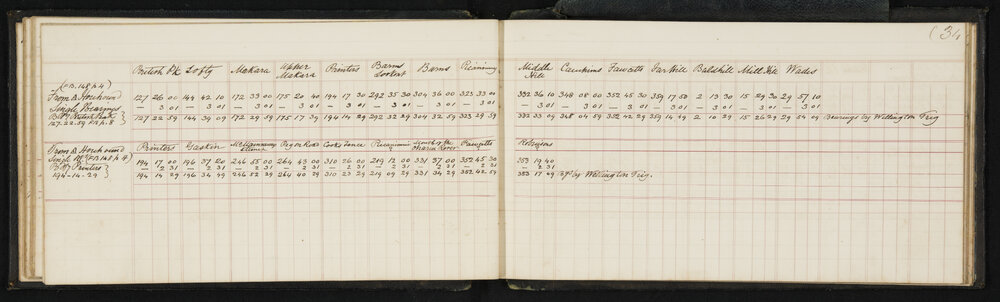 (34
British Pk Lofty Makara Upper Makara Printers Barns Lookout Barns Middle Hill Cawkins Fawcetts Far Hill Baldhill Mill Hill Wades
(FB. 148 p 4)
From D 127 26 00 144 42 10 172 33 00 175 20 40 194 17 30 292 35 30 304 36 00 323 33 00 332 36 10 348 08 00 352 45 30 359 17 50 2 13 30 15 29 30 29 57 10
Single Bearings — 3 01 — 3 01 — 3 01 — 3 01 — 3 01 — 3 01 — 3 01 — 3 01 — 3 01 — 3 01 — 3 01 — 3 01 — 3 01 — 3 01 — 3 01
Bg to British Peak 127 22 59 144 39 09 172 29 59 175 17 39 194 14 29 292 32 29 304 32 59 323 29 59 332 33 09 348 04 59 352 42 29 359 14 49 2 10 29 15 26 29 29 54 09 Bearings by Wellington Trig
127. 22. 59 p. 8
From D Printers Gaskin Pigeon Rock Cooks dance Fawcetts Robinsons
Single Bgs (FB 148 p 4) 194 17 00 196 37 20 246 55 00 264 43 00 310 26 00 219 12 00 331 37 00 352 45 30 353 19 40
Bg to Printers — 2 31 — 2 31 — 2 31 — 2 31 — 2 31 — 2 31 — 2 31 — 2 31 — 2 31
194-14-29 194 14 29 196 34 49 246 52 29 264 40 29 310 23 29 219 09 29 331 34 29 352 42 59 353 17 09 by Wellington Trig.